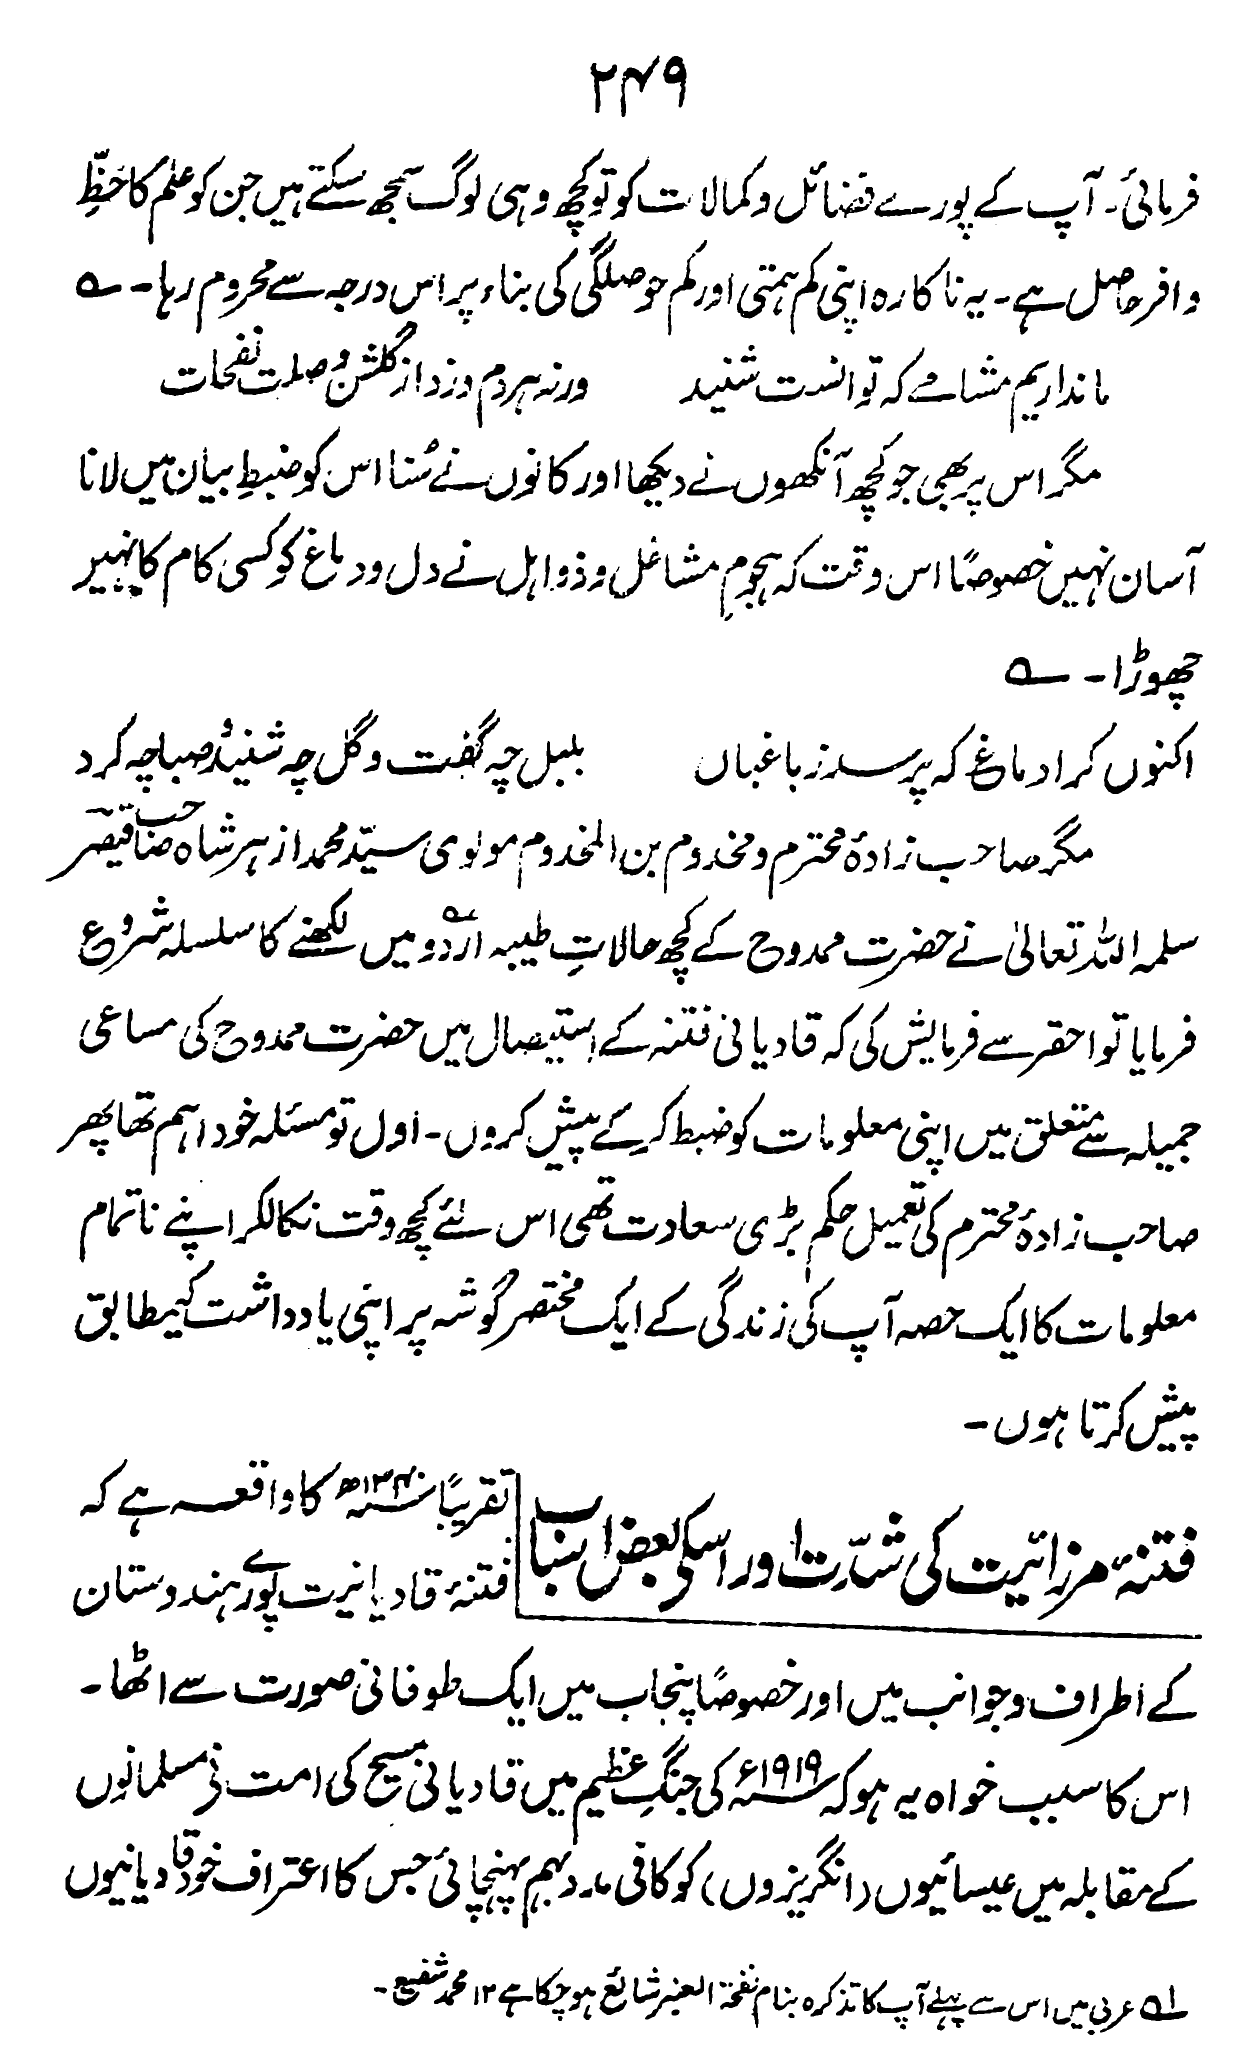 ۲۴۹
فرمائی۔ آپ کے پورے فضائل و کمالات کو تو کچھ وہی لوگ سمجھ سکتے ہیں جن کو علم کا حظِّ
وافر حاصل ہے۔ یہ ناکارہ اپنی کم ہمتی اور کم حوصلگی کی بناء پر اس درجہ سے محروم رہا۔ ؎
ما نداریم مشامے کہ توانست شنید ورنہ ہر دم وزد از گلشن وصلت نفحات
مگر اس پر بھی جو کچھ آنکھوں نے دیکھا اور کانوں نے سُنا اس کو ضبطِ بیان میں لانا
آسان نہیں خصوصًا اس وقت کہ ہجومِ مشاغل و ذواہل نے دل و دماغ کو کسی کام کا نہیں
چھوڑا۔ ؎
اکنوں کرا دماغ کہ پرسد ز باغباں بلبل چہ گفت و گل چہ شنید و صبا چہ کرد
مگر صاحب زادۂ محترم و مخدوم بن المخدوم مولوی سیّد محمد ازہر شاہ صاحب قیصر
سلمہ اللہ تعالیٰ نے حضرت ممدوح کے کچھ حالاتِ طیبہ اُردو میں لکھنے کا سلسلہ شروع
فرمایا تو احقر سے فرمایش کی کہ قادیانی فتنہ کے استیصال میں حضرت ممدوح کی مساعی
جمیلہ سے متعلق میں اپنی معلومات کو ضبط کر کے پیش کروں۔ اول تو مسئلہ خود اہم تھا پھر
صاحب زادۂ محترم کی تعمیل حکم بڑی سعادت تھی اس لئے کچھ وقت نکالکر اپنے ناتمام
معلومات کا ایک حصہ آپ کی زندگی کے ایک مختصر گوشہ پر اپنی یادداشت کیمطابق
پیش کرتا ہوں۔
فتنۂ مرزائیت کی شدّت اور اسکی بعض اسباب
تقریبًا ۱۳۴۰ھ کا واقعہ ہے کہ
فتنۂ قادیانیت پورے ہندوستان
کے اطراف و جوانب میں اور خصوصًا پنجاب میں ایک طوفانی صورت سے اٹھا۔
اس کا سبب خواہ یہ ہو کہ ۱۹۱۹ء کی جنگِ عظیم میں قادیانی مسیح کی امت نے مسلمانوں
کے مقابلہ میں عیسائیوں (انگریزوں) کو کافی مدد بہم پہنچائی جس کا اعتراف خود قادیانیوں
؎۱ عربی میں اس سے پہلے آپ کا تذکرہ بنام نفحۃ العنبر شائع ہو چکا ہے ۱۲ محمد شفیع۔